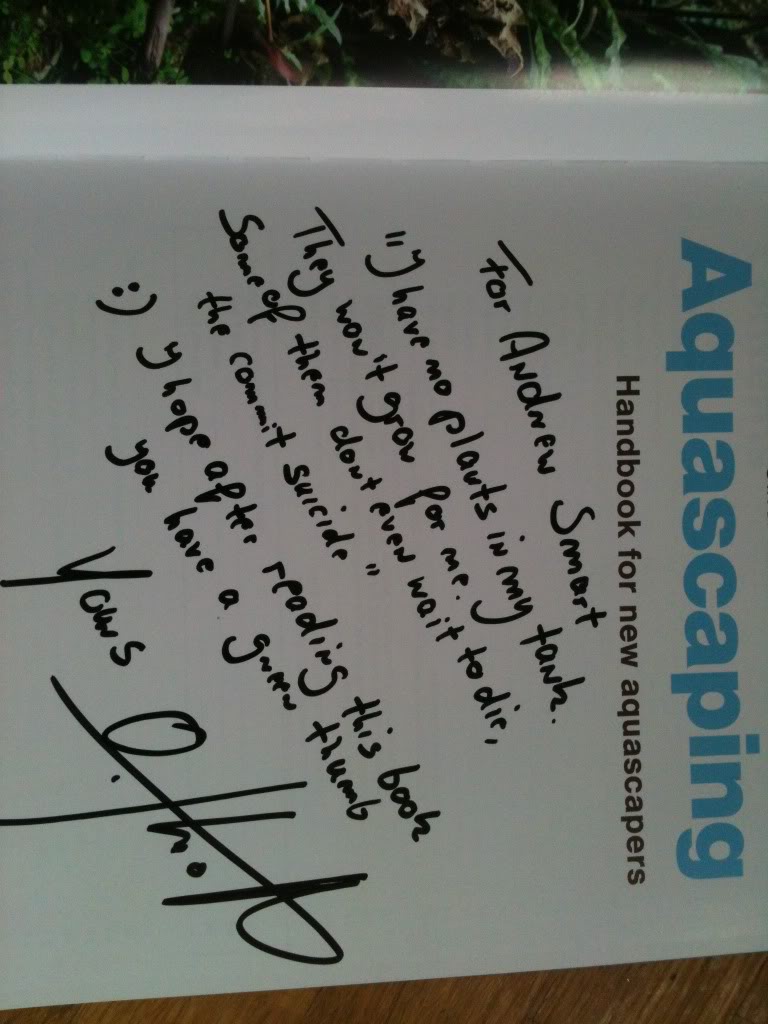 Aquascaping
Handbook for new aquascapers
For Andrew Smart
"y have no plants in my tank.
They won't grow for me.
Some of them dont even wait to die,
the commit suicide"
:) y hope after reading this book
you have a green thumb
Yours